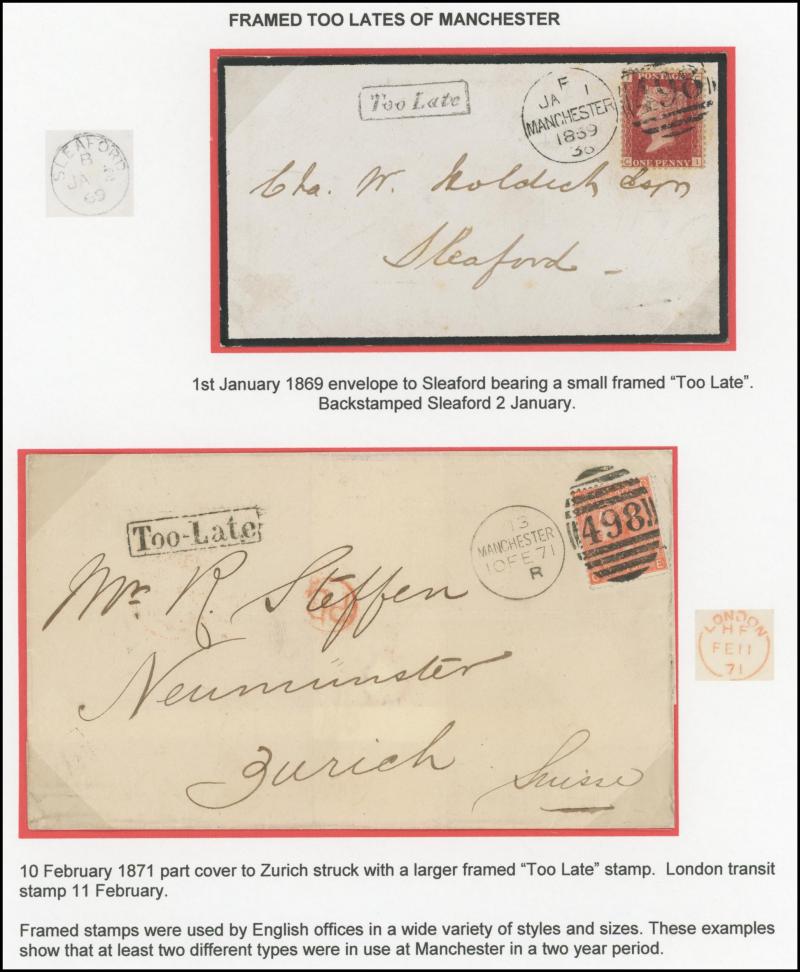 FRAMED TOO LATES OF MANCHESTER
Too Late
F
JA 1
MANCHESTER
1869
36
498
POSTAGE
C I
ONE PENNY
SLEAFORD
B
JA 2
69
Cha. W. Holdich Esqr
Sleaford
1st January 1869 envelope to Sleaford bearing a small framed “Too Late”.
Backstamped Sleaford 2 January.
Too-Late
13
MANCHESTER
10 FE 71
R
498
Mr. R. Steffen
Neumünster
Zurich
Suisse
LONDON
HF
FE 11
71
10 February 1871 part cover to Zurich struck with a larger framed “Too Late” stamp. London transit
stamp 11 February.
Framed stamps were used by English offices in a wide variety of styles and sizes. These examples
show that at least two different types were in use at Manchester in a two year period.